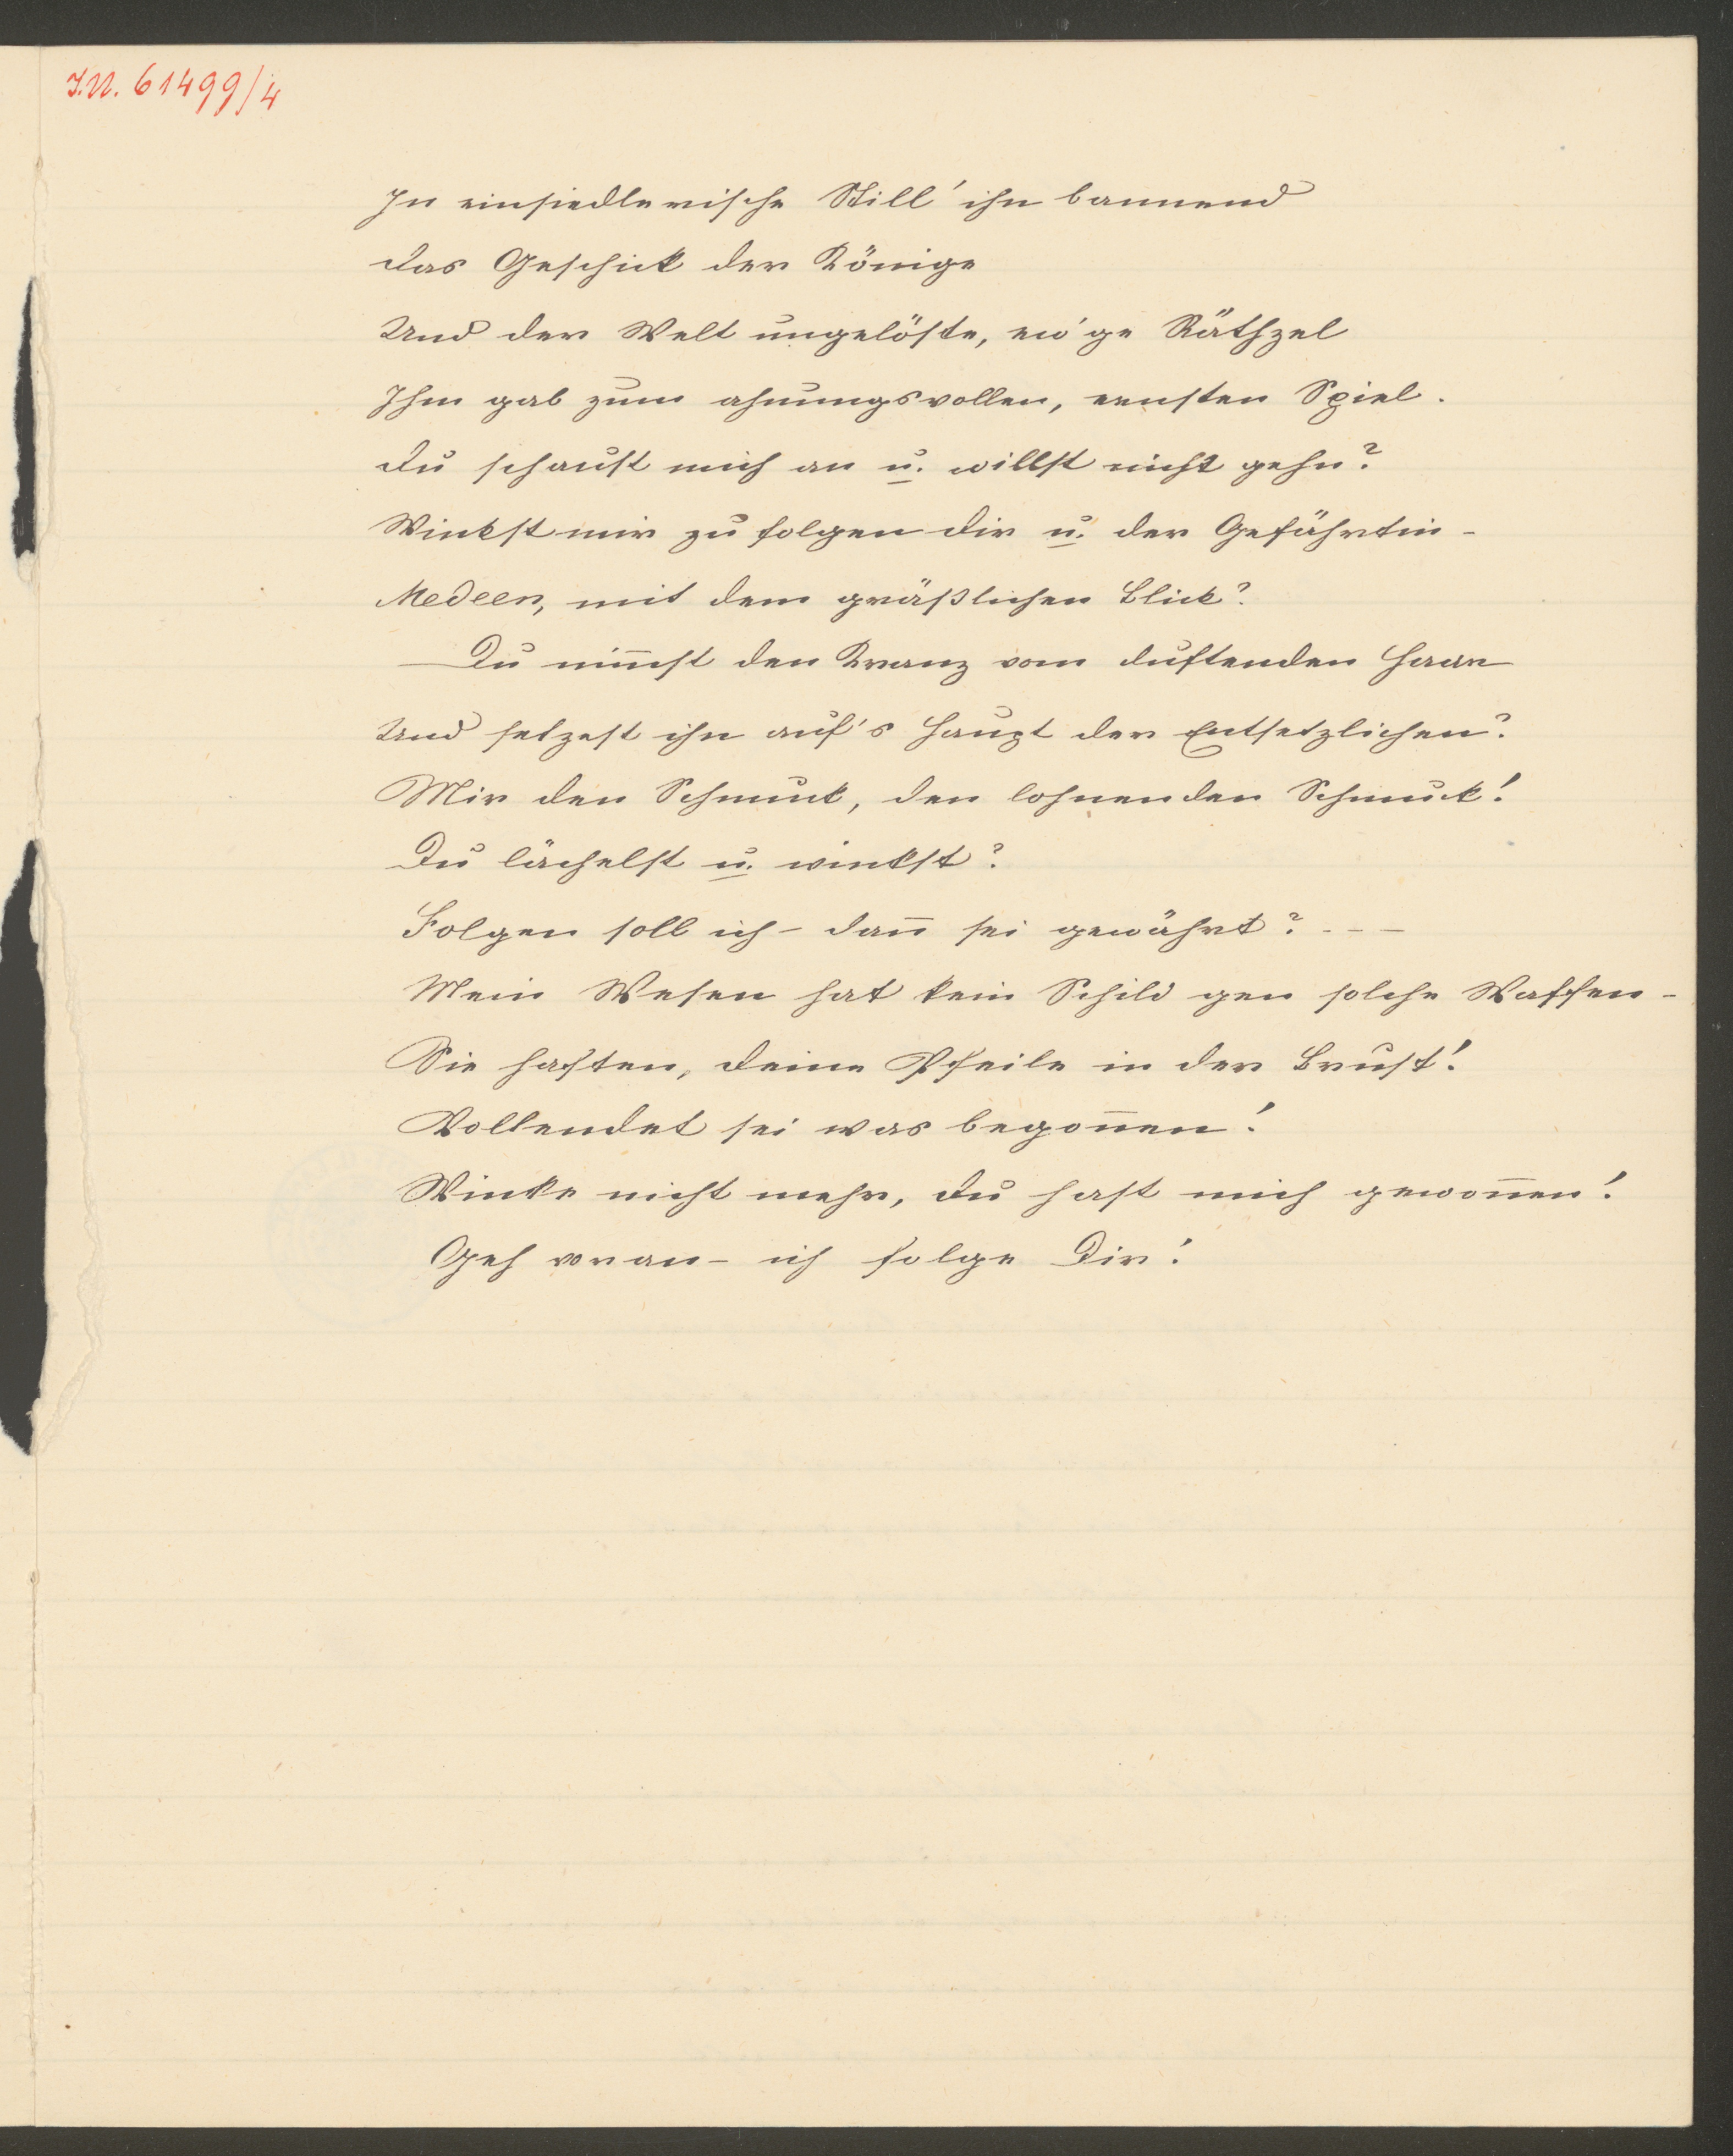 I.N. 61499/4
In einsiedlerische Still' ihn bannend
das Geschick der Könige
Und der Welt ungelöste, ew'ge Räthzel
Ihm gab zum ahnungsvollen, ernsten Spiel.
du schaust mich an u. willst nicht gehn?
Winkst mir zu folgen dir u. der Gefährtin -
Medeen, mit dem gräßlichen Blick?
Du nim̅st den Kranz vom duftenden Haar
Und setzest ihn auf's Haupt der Entsetzlichen?
Mir den Schmuck, den lohnenden Schmuck!
Du lächelst u. winkst?
Folgen soll ich - dan̅ sei gewährt? - - -
Mein Wesen hat kein Schild gen solche Waffen -
Sie haften, deine Pfeile in der Brust!
Vollendet sei was begon̅en!
Winke nicht mehr, du hast mich gewon̅en!
Geh voran - ich folge Dir!